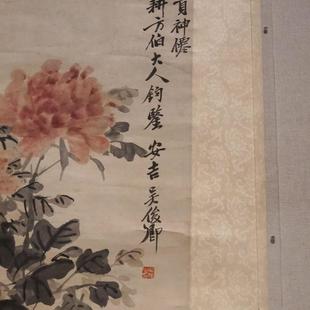 貢神僊
耕方伯大人鈞鑒 安吉吳俊卿